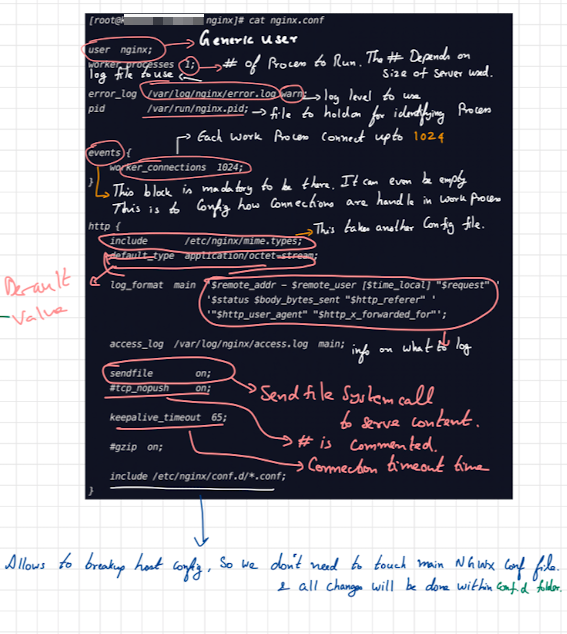 [root@k nginx]# cat nginx.conf
user nginx; Generic User
worker_processes 1; # of Process to Run. The # Depends on
log file to use Size of Server used.
error_log /var/log/nginx/error.log warn; log level to use
pid /var/run/nginx.pid; file to hold on for identifying Process
Each Work Process Connect upto 1024
events {
worker_connections 1024;
}
This block is madatory to be there. It can even be empty
This is to Config how Connections are handle in work Process
http {
This takes another Config file.
include /etc/nginx/mime.types;
default_type application/octet-stream;
Default
Value
log_format main '$remote_addr - $remote_user [$time_local] "$request" '
'$status $body_bytes_sent "$http_referer" '
'"$http_user_agent" "$http_x_forwarded_for"';
access_log /var/log/nginx/access.log main; info on what to log
sendfile on;
#tcp_nopush on; Send file System call
to serve content.
keepalive_timeout 65;
# is Commented.
#gzip on; Connection timeout time
include /etc/nginx/conf.d/*.conf;
}
Allows to breakup host config. So we don't need to touch main NGINX Conf file.
& all changes will be done within Conf.d folder.